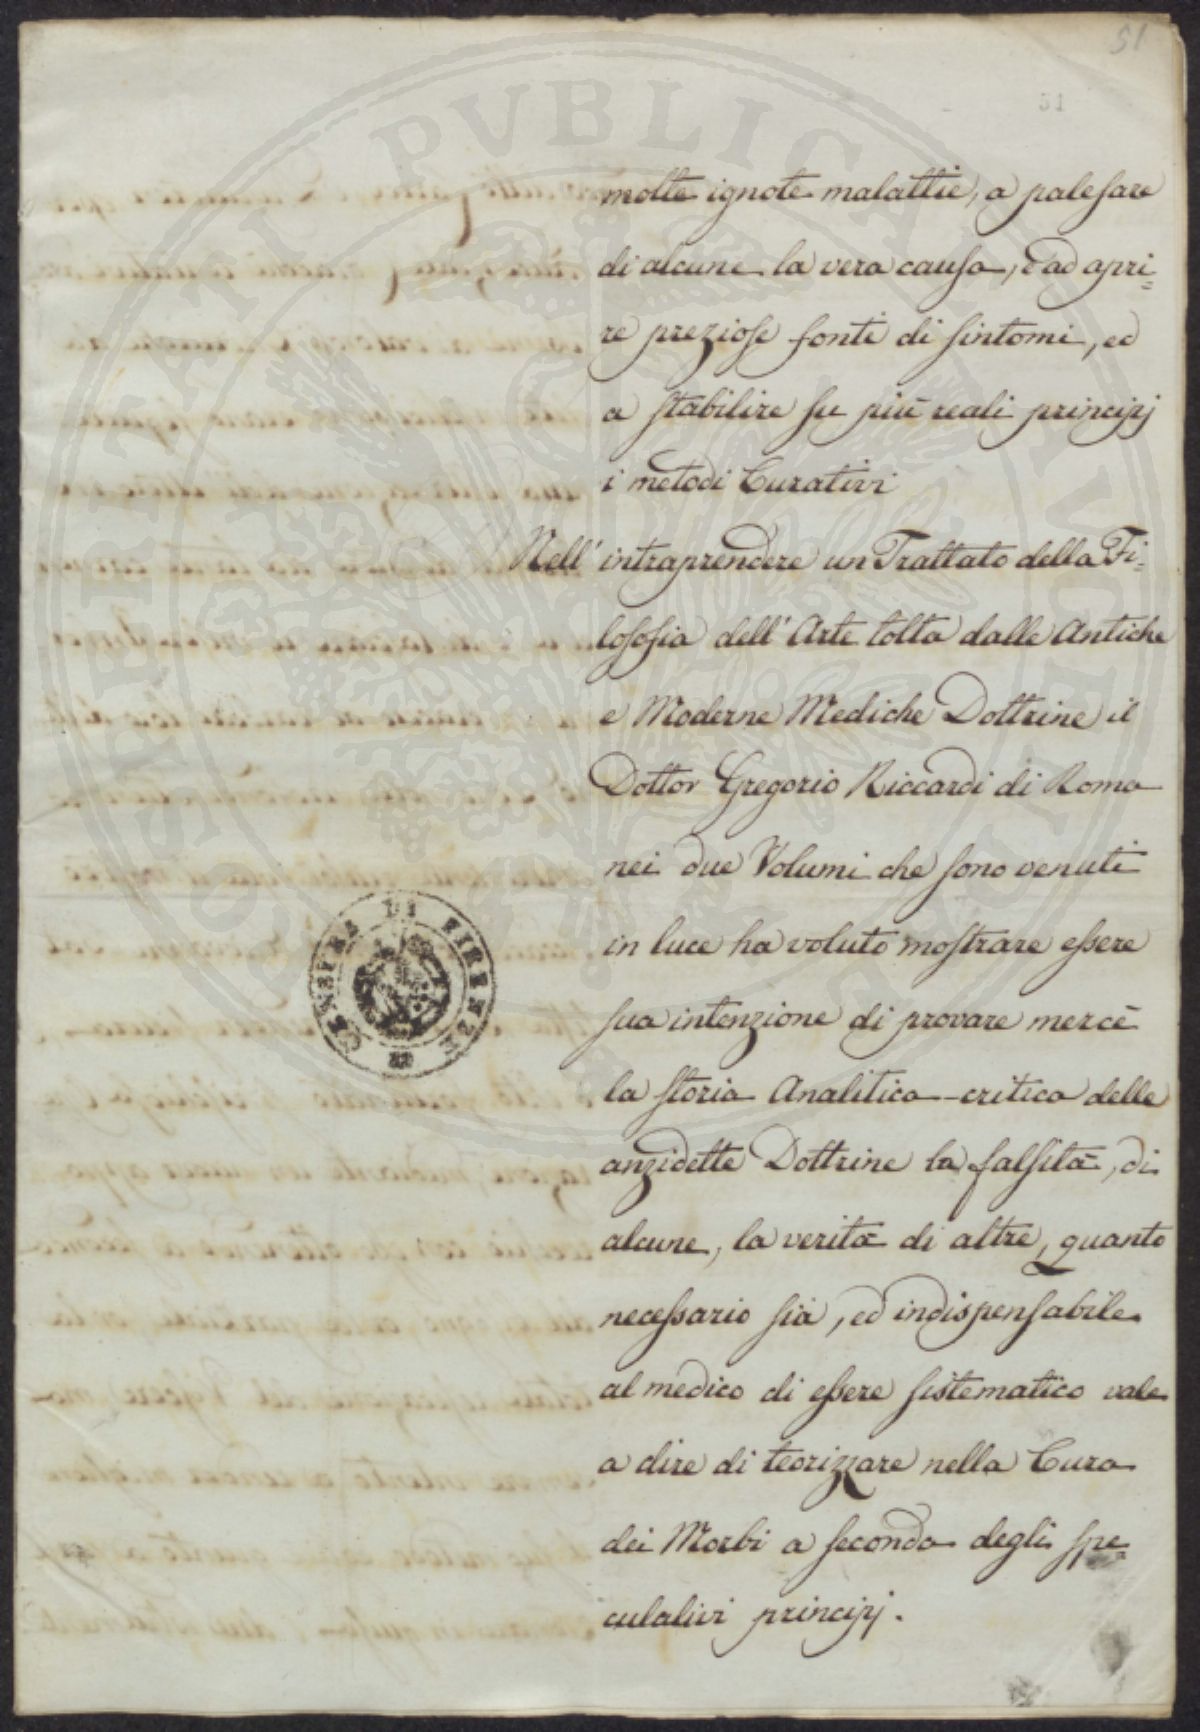 51
51
molte ignote malattie, a palesare
di alcune la vera causa, ed apri=
re preziose fonti di sintomi, ed
a stabilire su più reali principj
i metodi Curativi
Nell' intraprendere un Trattato della Fi=
losofia dell' Arte tolta dalle Antiche
e Moderne Mediche Dottrine il
Dottor Gregorio Riccardi di Roma
nei due Volumi che sono venuti
in luce ha voluto mostrare essere
sua intenzione di provare mercè
la storia Analitico-critica delle
anzidette Dottrine la falsità, di
alcune, la verità di altre, quanto
necessario sià, ed indispensabile
al medico di essere sistematico vale
a dire di teorizzare nella Cura
dei Morbi a seconda degli spe=
culativi principj.
DI FIRENZE
PUBLICAE
PROSPERITATI